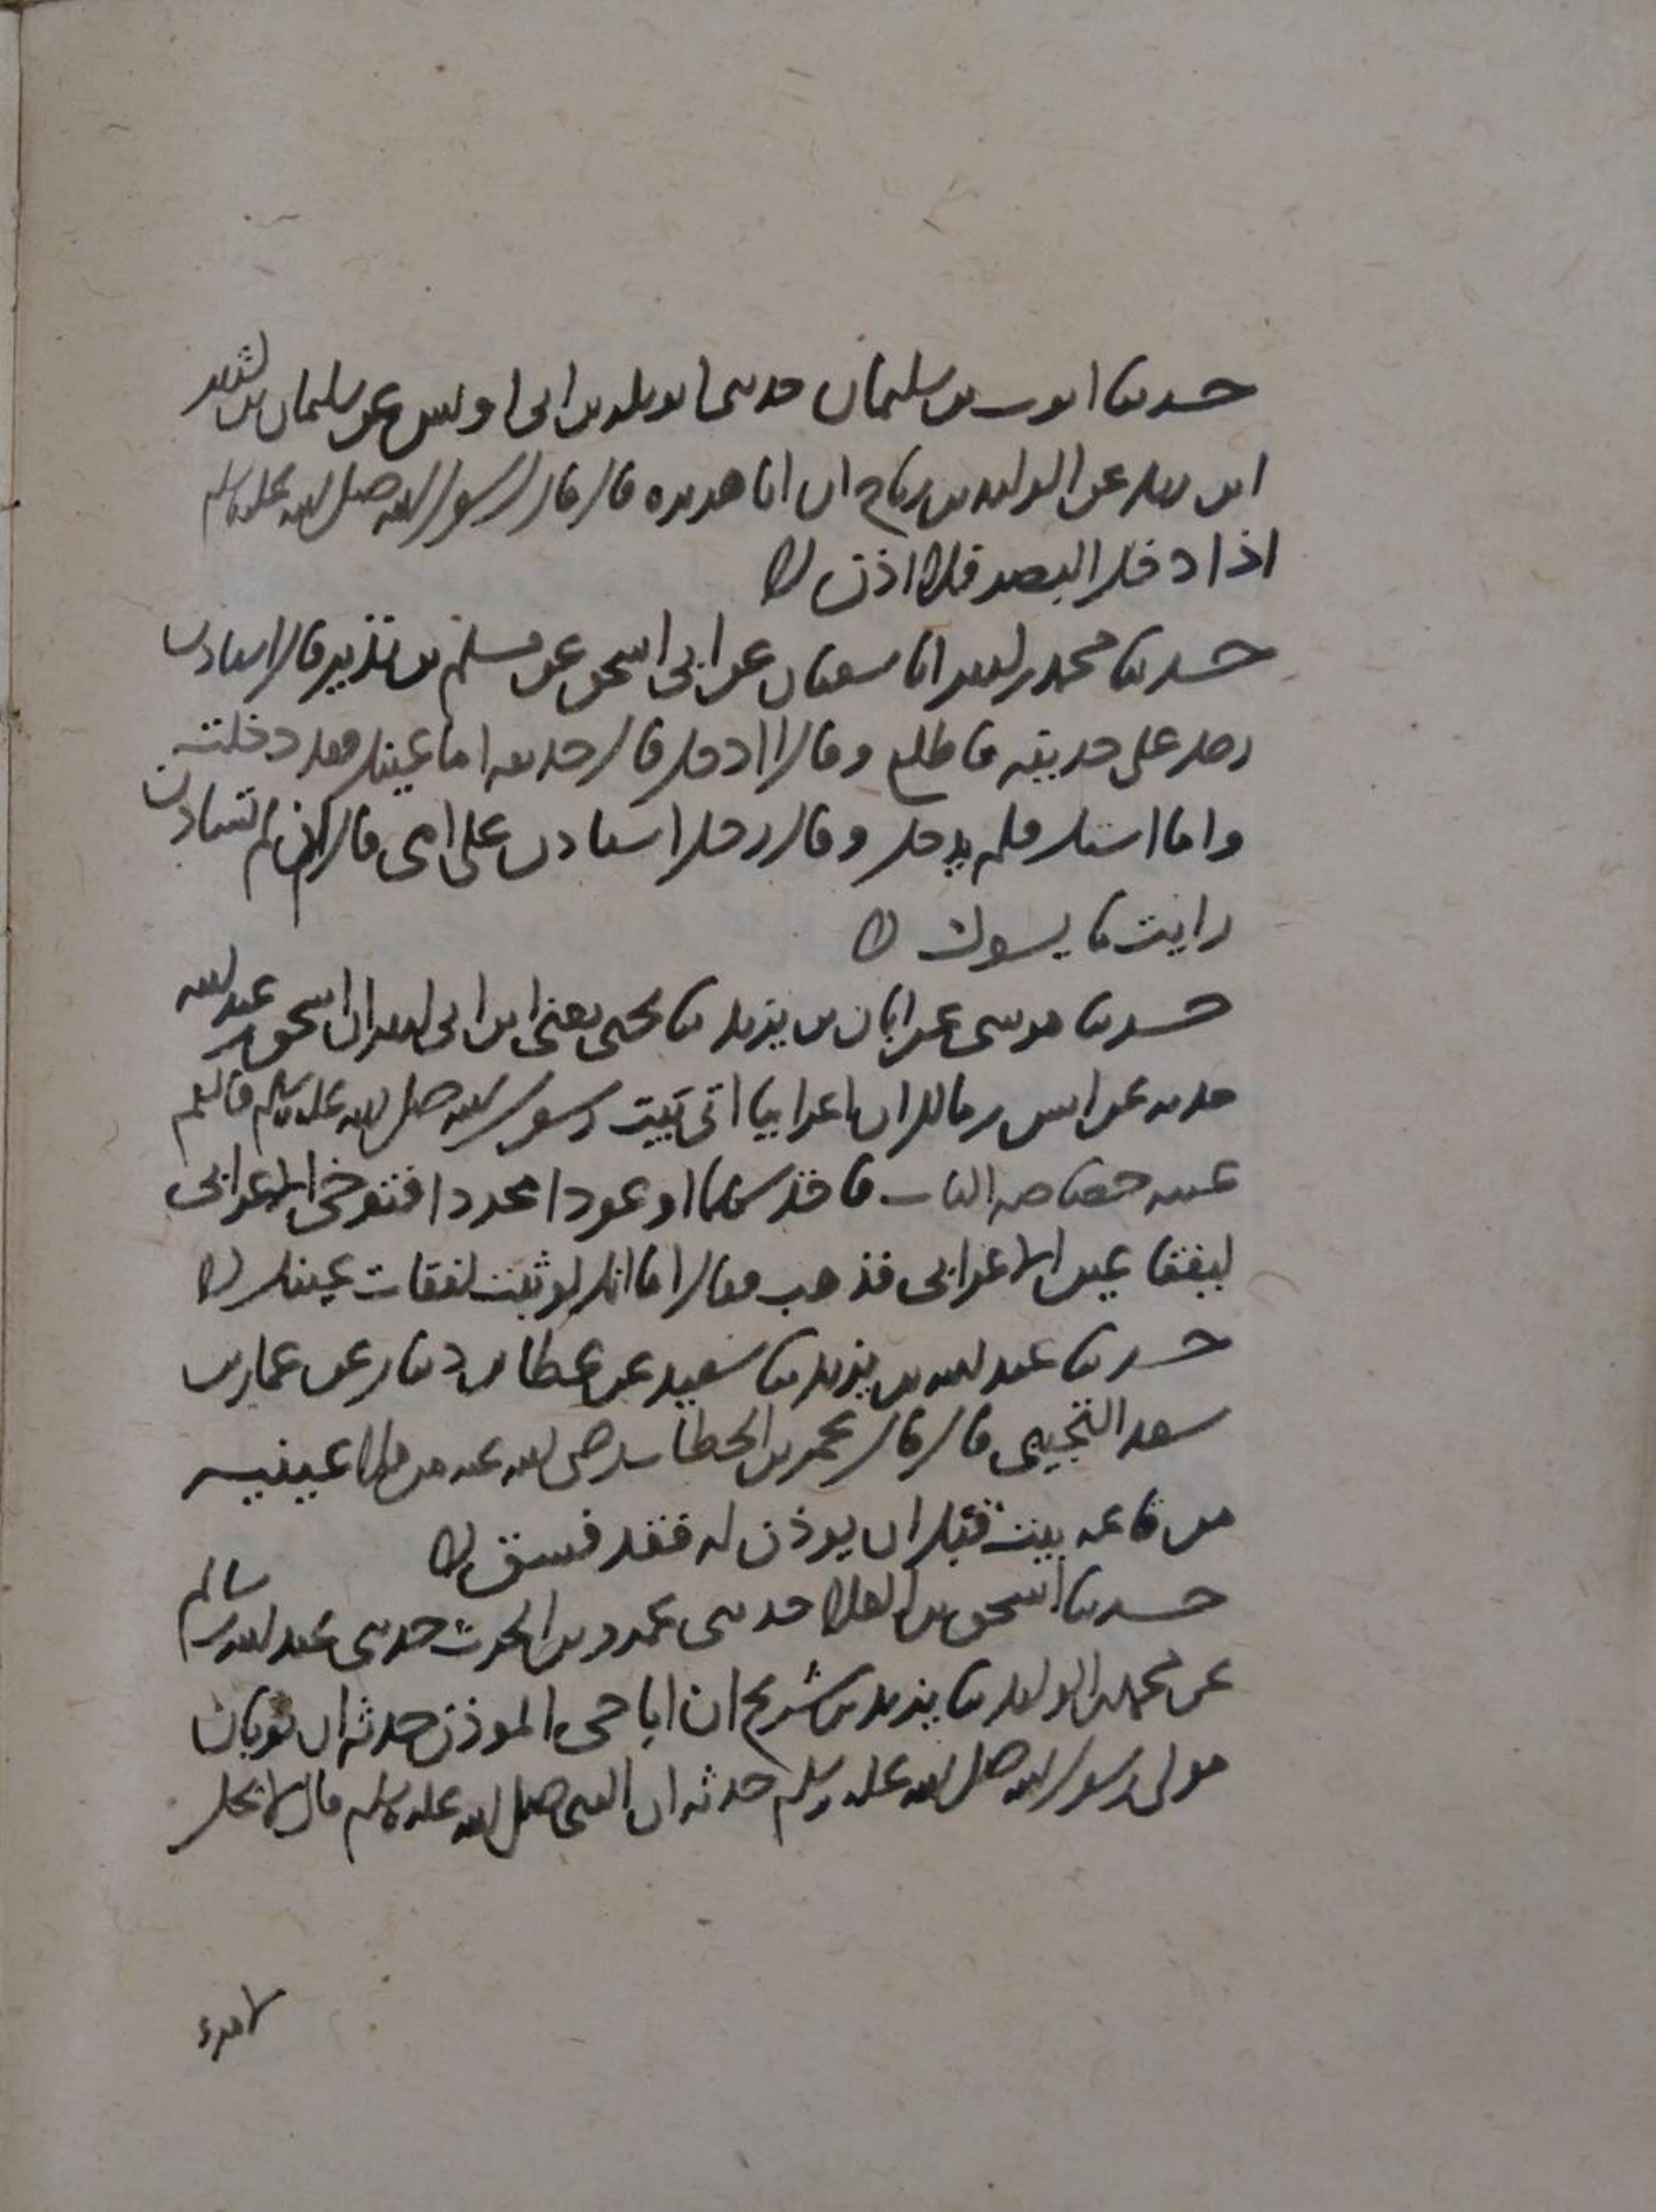 حدثنا ايوب بن سليمان حدثنى ابو بكر بن ابى اويس عن سليمان عن كثير
ابن زيد عن الوليد بن رباح ان ابا هريره قال قال رسول الله صلى الله عليه وسلم
اذا دخل البصر فلا اذن له
حدثنا محمد بن كثير انا سفيان عن ابى اسحق عن مسلم بن نذير قال استاذن
رجل على حذيفه فاطلع وقال اادخل قال حذيفه اما عينك فقد دخلت
واما استك فلم تدخل وقال رجل استاذن على امى قال ان لم تستاذن
رايت ما يسوك
حدثنا موسى عن ابان بن يزيد ثنا يحيى يعنى ابن ابى كثير ان اسحق بن عبد الله
حدثه عن انس بن مالك ان اعرابيا اتى بيت رسول الله صلى الله عليه وسلم فالقم
عينه خصاصه الباب فاخذ سهما او عودا محددا فتوخى الاعرابى
ليفقا عين الاعرابى فذهب فقال اما انك لو ثبت لفقات عينك
حدثنا عبد الله بن يزيد ثنا سعيد عن عطا بن دينار عن عمار بن
سعد التجيبى قال قال عمر بن الخطاب رضى الله عنه من ملا عينيه
من قاعه بيت قبل ان يوذن له فقد فسق
حدثنا اسحق بن العلا حدثنى عمرو بن الحرث حدثنى عبد الله بن سالم
عن محمد بن الوليد ثنا يزيد بن شريح ان ابا حى الموذن حدثه ان ثوبان
مولى رسول الله صلى الله عليه وسلم حدثه ان النبى صلى الله عليه وسلم قال لا يحل
لامرء